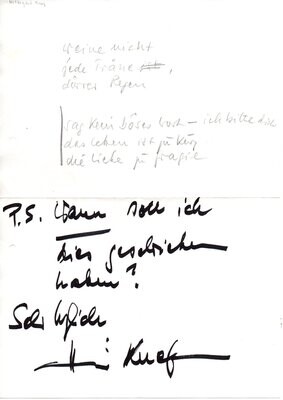 weine nicht
jede Träne
Regen
sag kein böses Wort – ich bitte dich
das Leben ist zu kurz
die Liebe zu fragil
P.S. Wann soll ich
dies geschrieben
haben?
Knef